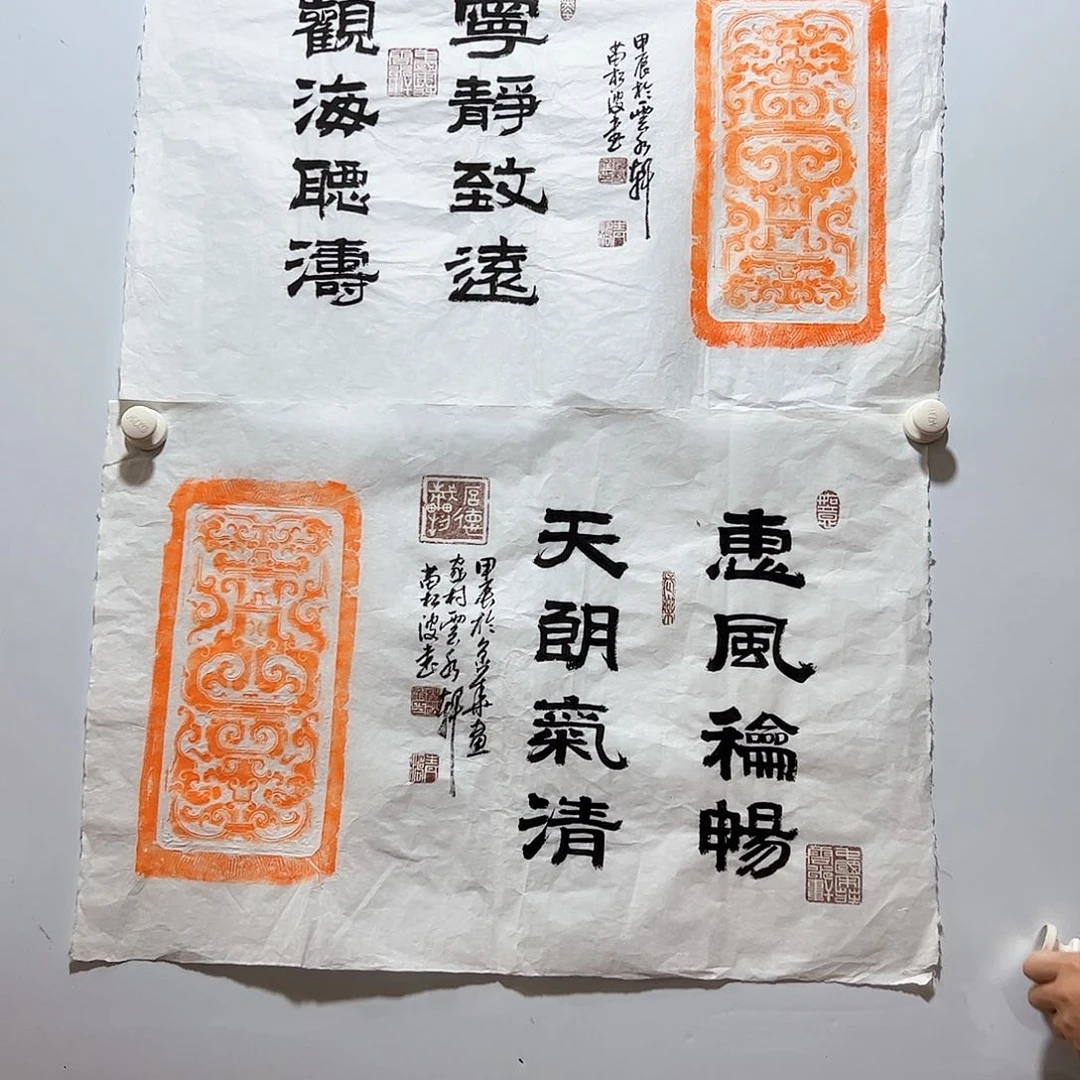 甲辰於雲水軒
尚松波書
寧靜致遠
觀海聽濤
惠風龢暢
天朗氣清
甲辰於京華畫
家村雲水軒
尚松波書
厚德載物